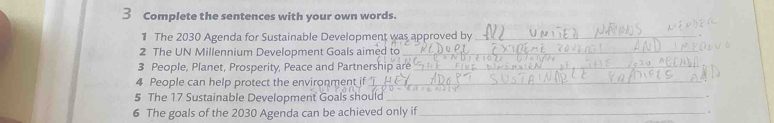 3 Complete the sentences with your own words.
1 The 2030 Agenda for Sustainable Development was approved by All UNITED NATIONS MEMBER
STATES
2 The UN Millennium Development Goals aimed to REDUCE EXTREME POVERTY AND IMPROVE
LIVING CONDITIONS
3 People, Planet, Prosperity, Peace and Partnership are THE FIVE DIMENSION OF THE 2030 AGENDA
4 People can help protect the environment if THEY ADOPT SUSTAINABLE AND
SUPPORT
5 The 17 Sustainable Development Goals should
6 The goals of the 2030 Agenda can be achieved only if